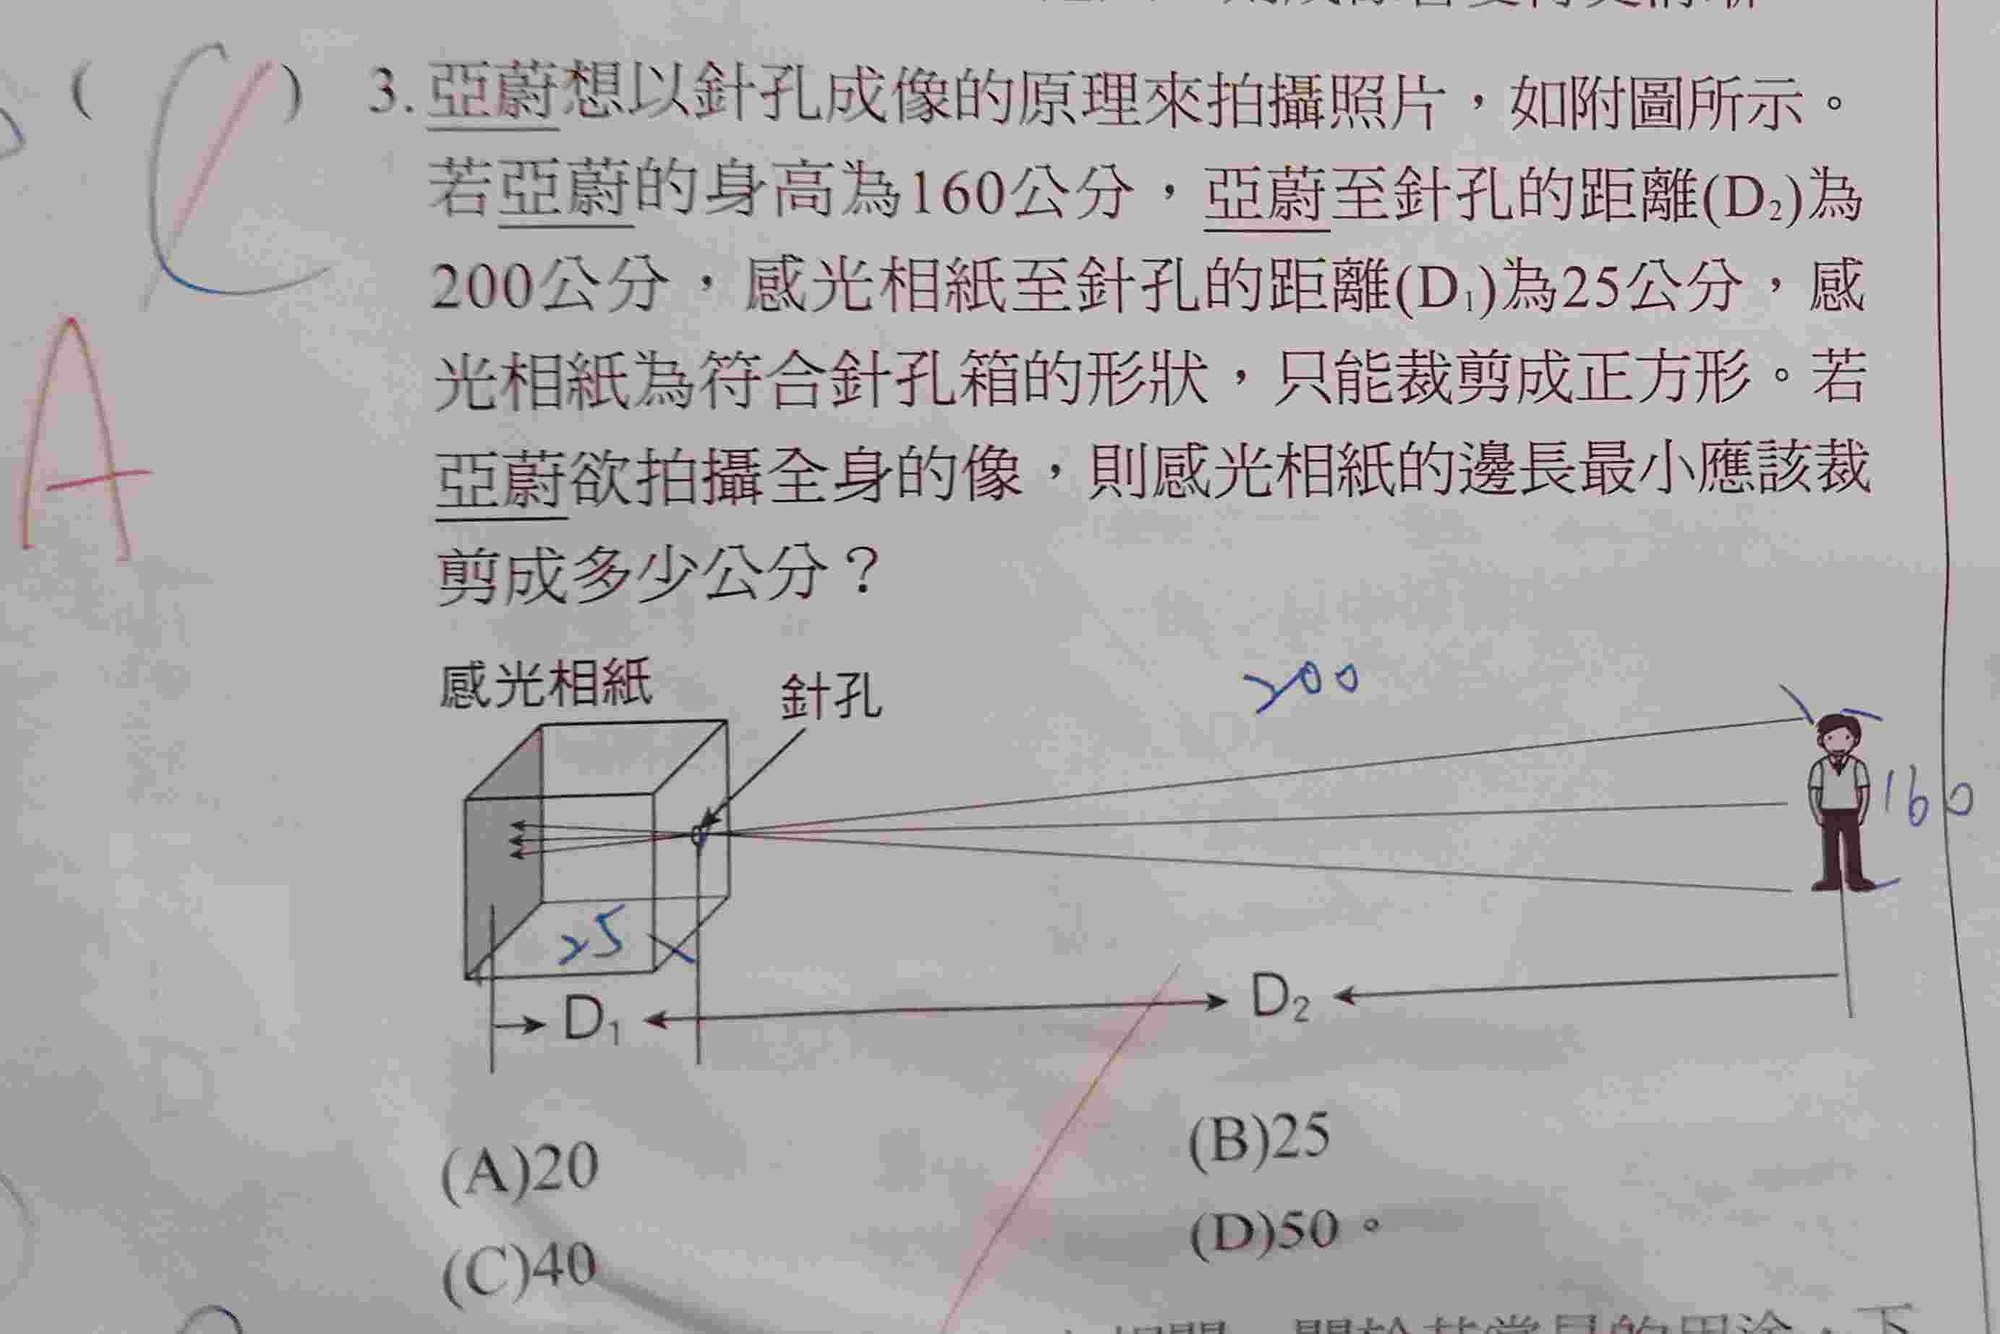 ( C ) 3. 亞蔚想以針孔成像的原理來拍攝照片，如附圖所示。
若亞蔚的身高為160公分，亞蔚至針孔的距離(D₂)為
200公分，感光相紙至針孔的距離(D₁)為25公分，感
光相紙為符合針孔箱的形狀，只能裁剪成正方形。若
A
亞蔚欲拍攝全身的像，則感光相紙的邊長最小應該裁
剪成多少公分？
感光相紙
針孔
200
160
25
D₁
D₂
(A)20
(B)25
(C)40
(D)50。